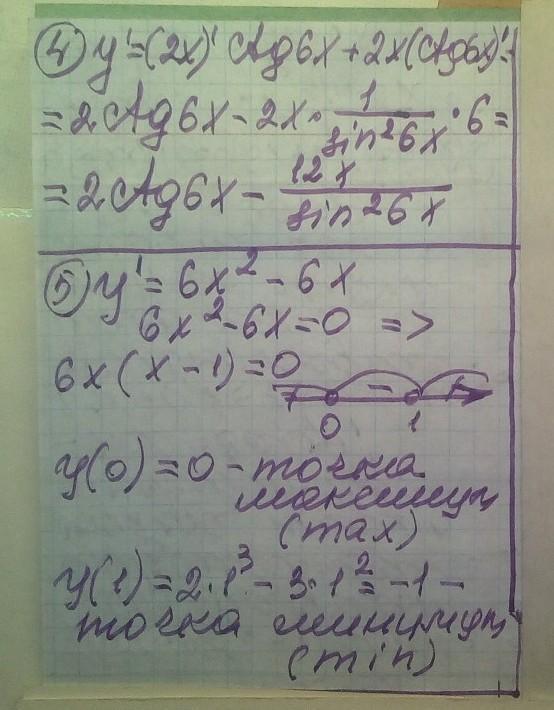 ④ y' = (2x)' ctg6x + 2x(ctg6x)' =
= 2ctg6x - 2x · 1/sin²6x · 6 =
= 2ctg6x - 12x/sin²6x
⑤ y' = 6x² - 6x
6x² - 6x = 0 =>
6x(x - 1) = 0
+ - +
0 1
y(0) = 0 - точка
максимум
(max)
y(1) = 2·1³ - 3·1² = -1 -
точка минимум
(min)